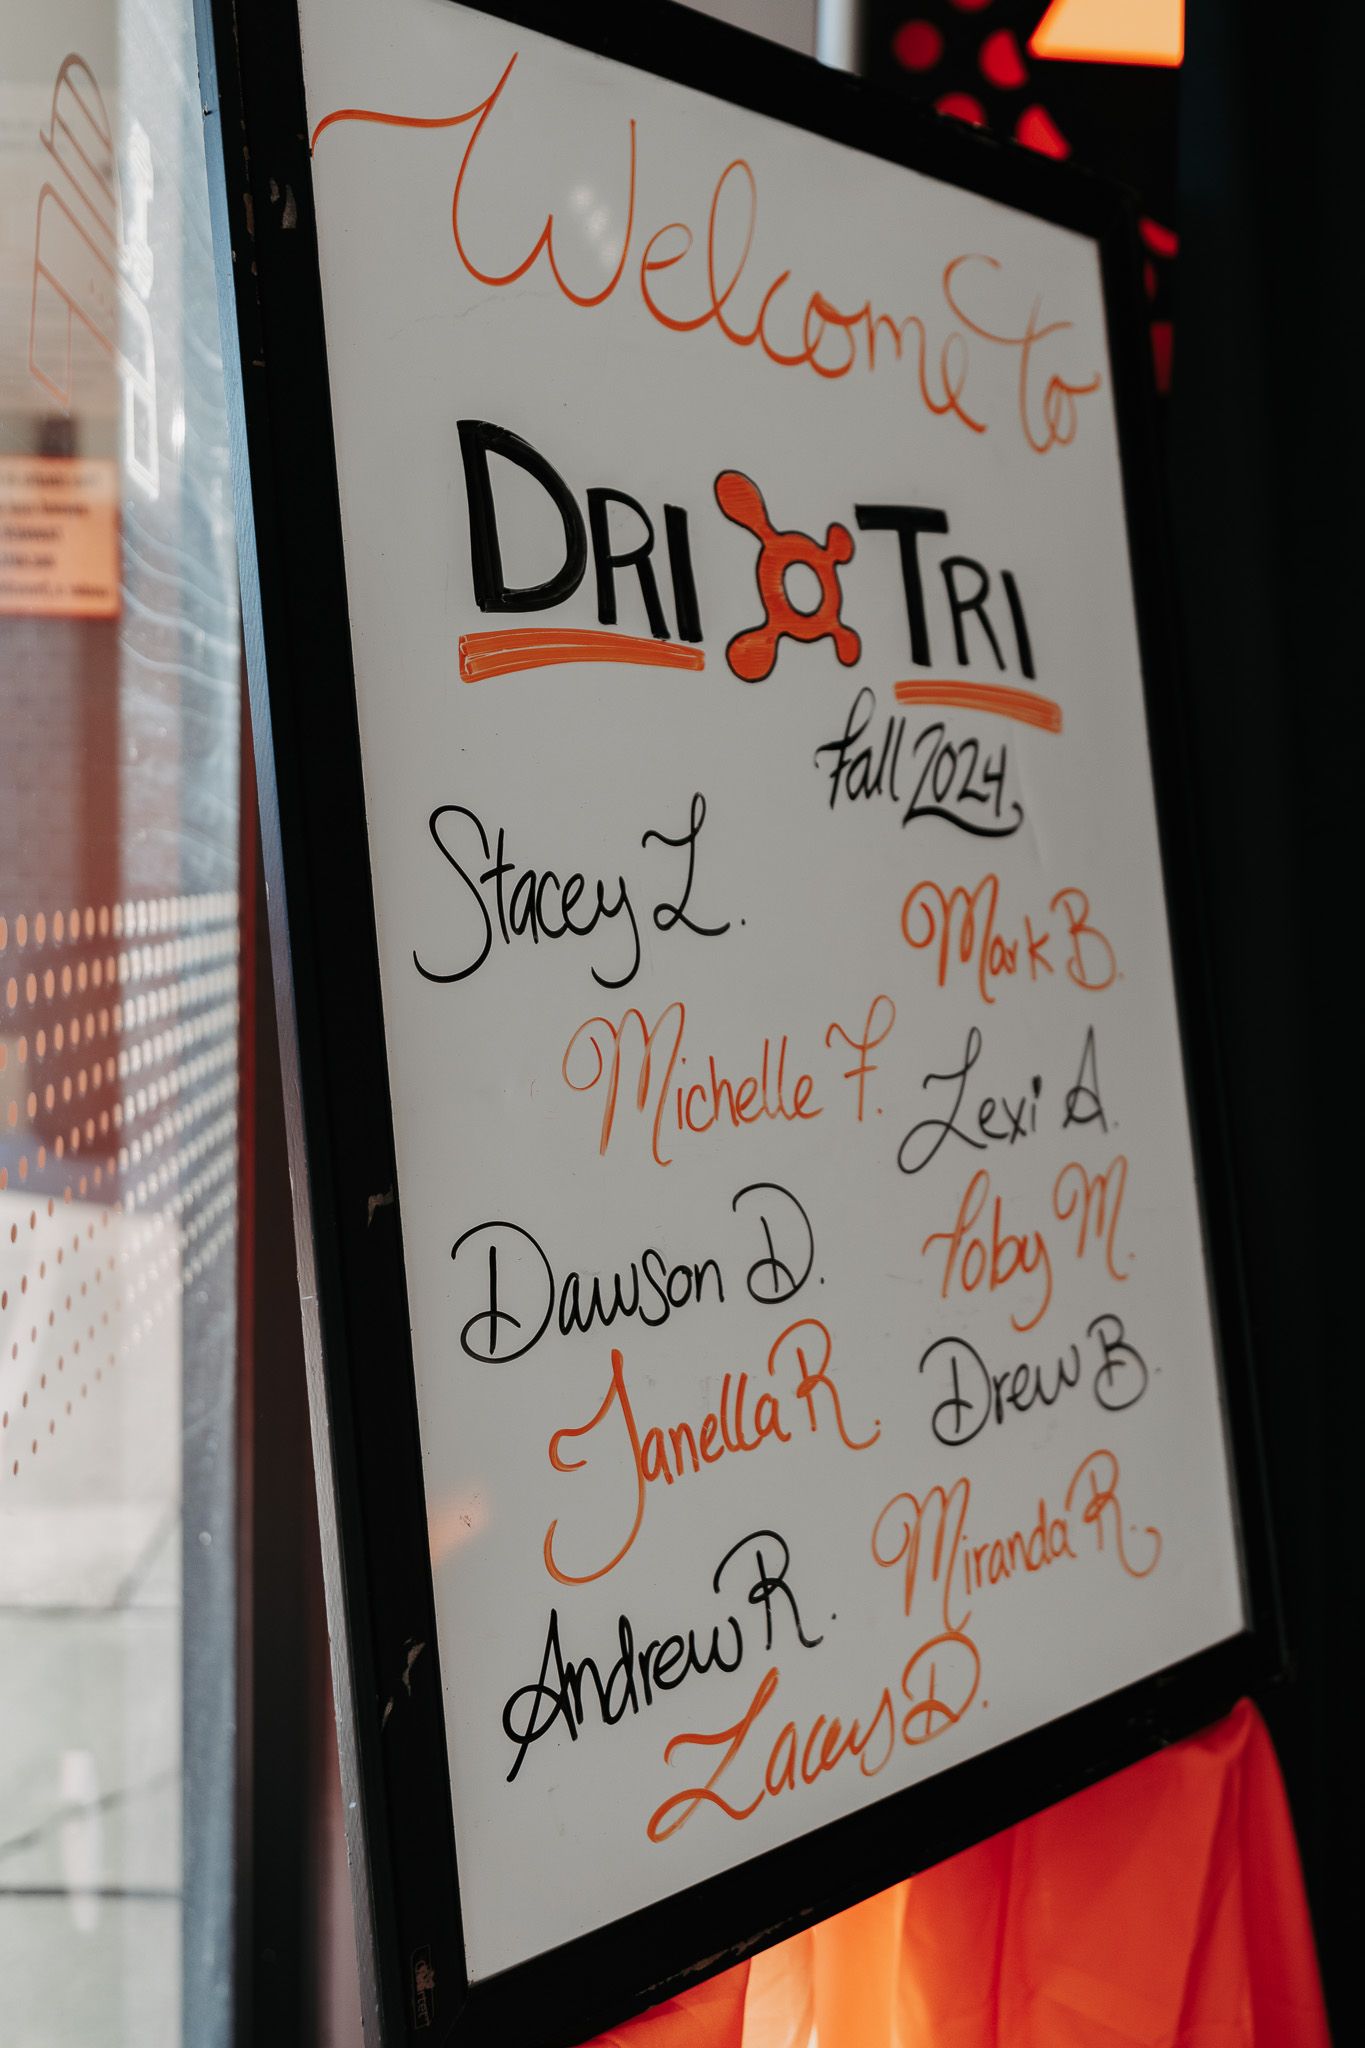 Welcome to
DRI TRI
Fall 2024
Stacey L.
Mark B.
Michelle F.
Lexi A.
Dawson D.
Toby M.
Janella R.
Drew B.
Andrew R.
Miranda R.
Lacey D.